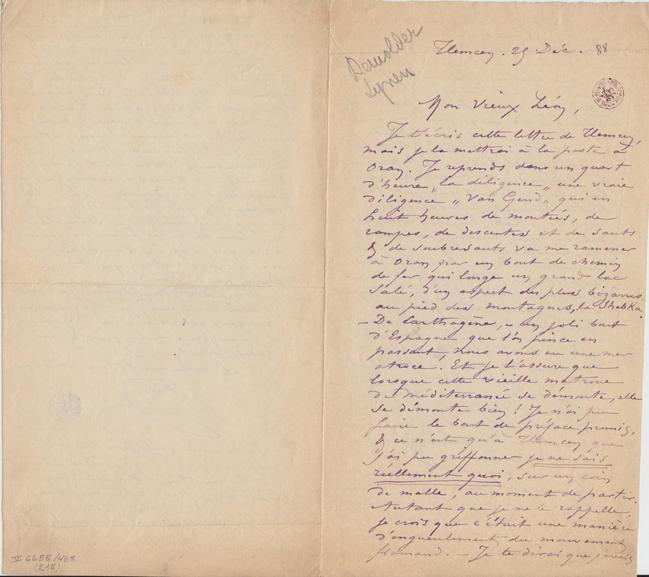 Demolder
Lynen
Tlemcen. 25 Déc. 88
Mon vieux Léon,
Je t'écris cette lettre de Tlemcen,
mais je la mettrai à la poste à
Oran. Je reprends dans un quart
d'heure „la diligence„ une vraie
diligence „Van Gend„ qui en
huit heures de montées, de
rampes, de descentes et de sauts
& de soubresauts va me ramener
à Oran par un bout de chemin
de fer qui longe un grand lac
salé, d'un aspect des plus bizarres
au pied des montagnes, la Shebka.
– De Carthagène, un joli bout
d'Espagne que l'on pince en
passant, nous avons eu une mer
atroce. Et je t'assure que
lorsque cette vieille matrone
de méditerranée se démonte, elle
se démonte bien! Je n'ai pu
faire le bout de préface promis,
& ce n'est qu'à Tlemcen que
j'ai pu griffonner je ne sais
réellement quoi, sur un coin
de malle, au moment de partir.
Autant que je me le rappelle,
je crois que c'était une manière
d'engueulement du mouvement
flamand. – Je te dirai que j'avais
II 6655/465
(215)